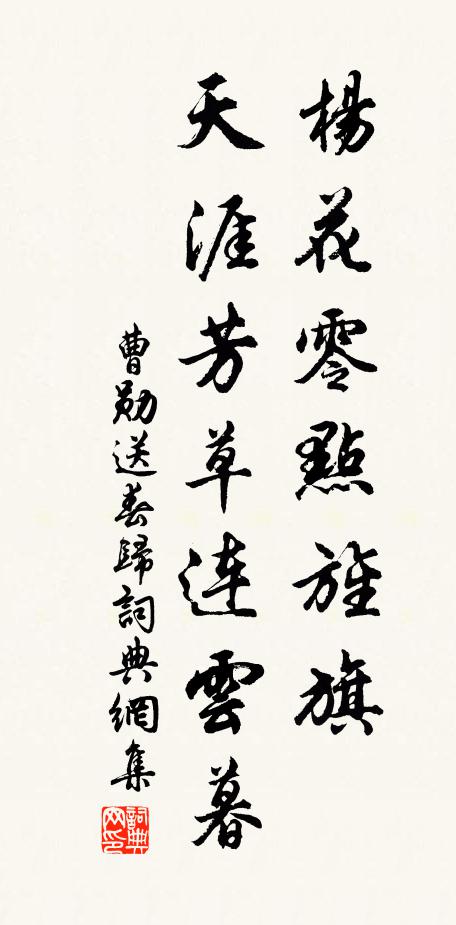 楊花零點旌旗
天涯芳草連雲暮
曹勛送春歸詞典網集
詞典
网印